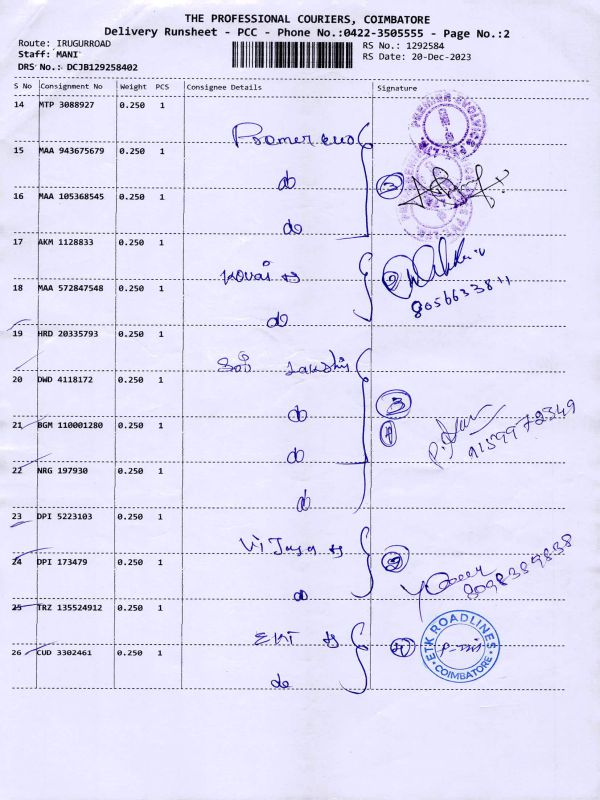 THE PROFESSIONAL COURIERS, COIMBATORE
Delivery Runsheet - PCC - Phone No.:0422-3505555 - Page No.:2
Route: IRUGURROAD
RS No.: 1292584
Staff: MANI
RS Date: 20-Dec-2023
DRS No.: DCJB129258402
S No Consignment No Weight PCS Consignee Details Signature
14 MTP 3088927 0.250 1
15 MAA 943675679 0.250 1
do
3
16 MAA 105368545 0.250 1
do
17 AKM 1128833 0.250 1
Kovai
18 MAA 572847548 0.250 1
do
19 HRD 20335793 0.250 1
Lakshi
20 DWD 4118172 0.250 1
do
3
21 BGM 110001280 0.250 1
do
4
9159972349
22 NRG 197930 0.250 1
do
23 DPI 5223103 0.250 1
24 DPI 173479 0.250 1
do
8098389838
25 TRZ 135524912 0.250 1
26 CUD 3302461 0.250 1
ETK ROADLINES
COIMBATORE
do